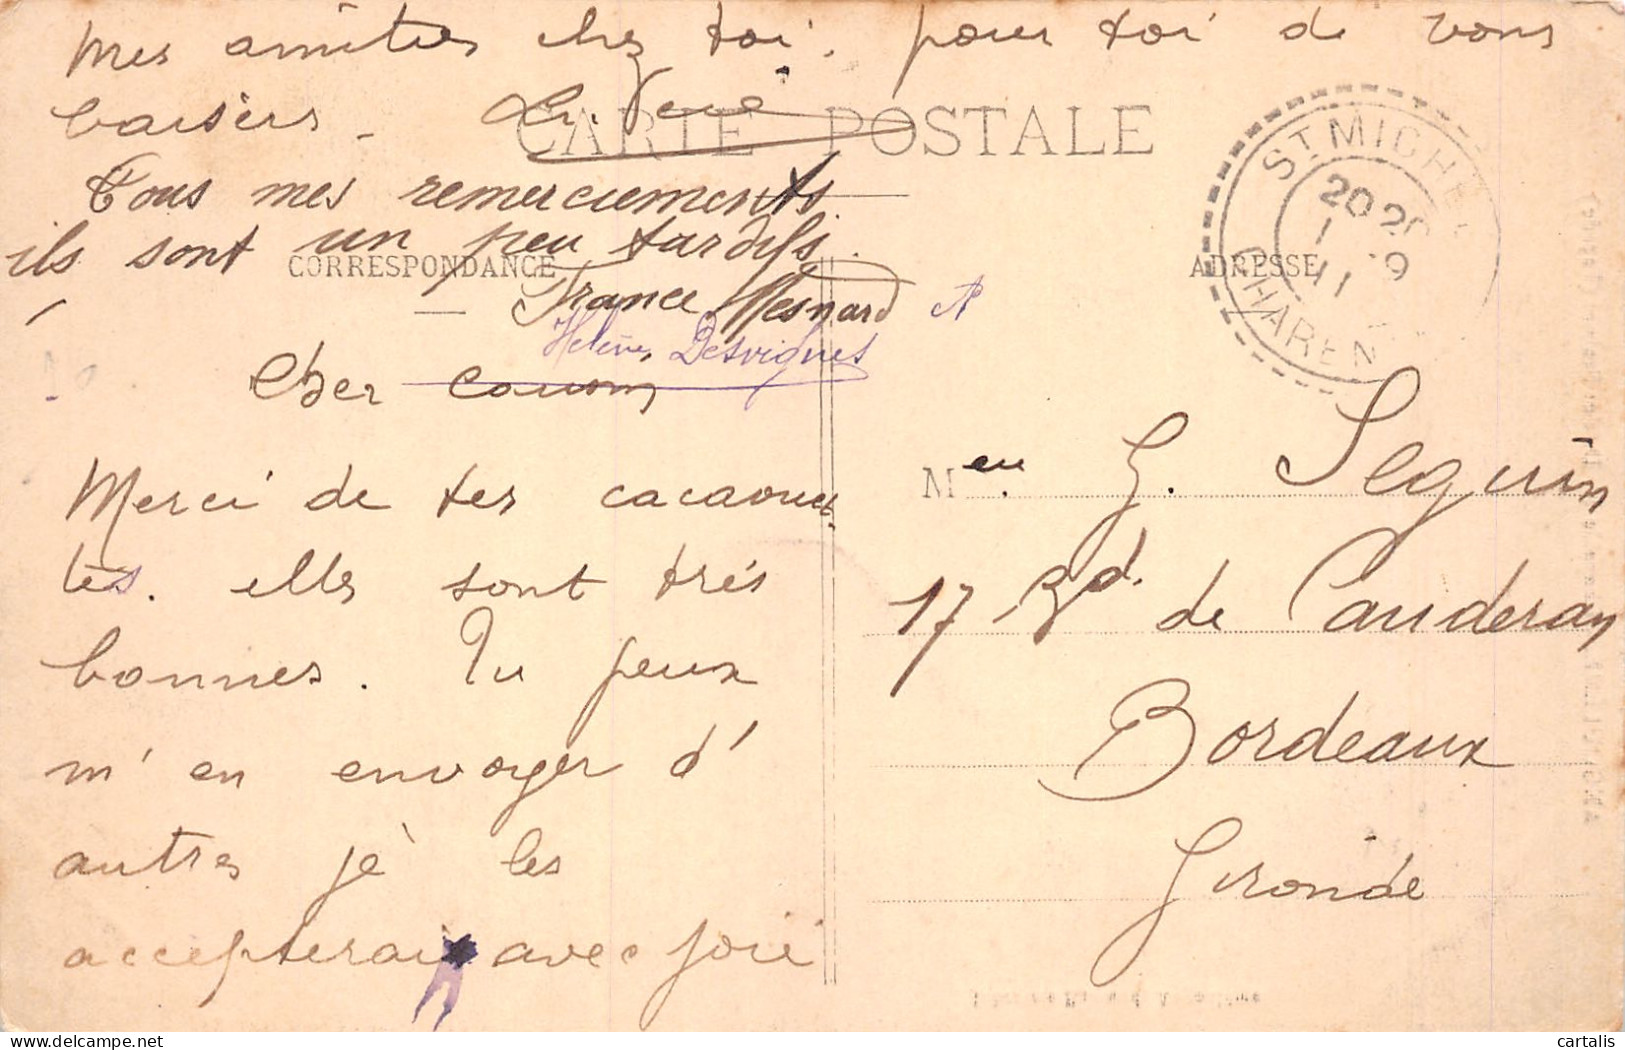 Mes amitiés chez toi. pour toi de bons
baisers.
CARTE POSTALE
Tous mes remerciements
ils sont un peu tardifs.
CORRESPONDANCE
France Mesnard
Helène Desvignes
Cher Cousin
Merci de tes cacaouet
tes. elles sont très
bonnes. Tu peux
m'en envoyer d'
autres je les
accepterai avec joie
ST MICHEL
20 20
CHAREN
ADRESSE
Meu G. Seguin
17 Bd. de Cauderan
Bordeaux
Gironde
cartalis
delcampe.net